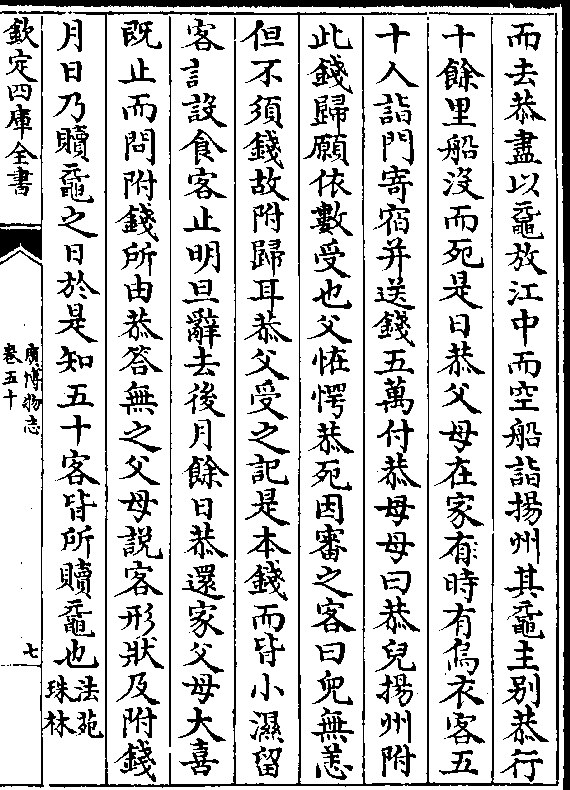 而去恭盡以黿放江中而空船詣揚州其黿主别恭行
十餘里船沒而死是日恭父母在家有時有烏衣客五
十人詣門寄宿并送錢五萬付恭母母曰恭兒揚州附
此錢歸願依數受也父恠愕恭死因審之客曰兒無恙
但不須錢故附歸耳恭父受之記是本錢而皆小濕留
客言設食客止明旦辭去後月餘日恭還家父母大喜
既止而問附錢所由恭答無之父母說客形狀及附錢
月日乃贖黿之日於是知五十客皆所贖黿也法苑
珠林
欽定四庫全書
廣博物志
卷五十
七